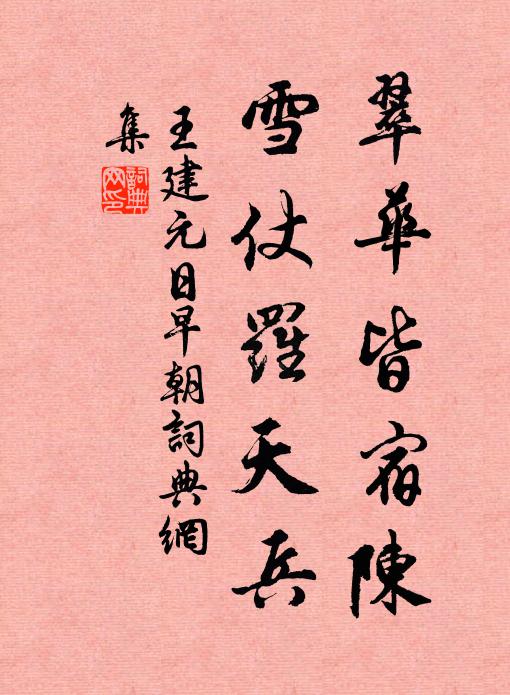 翠華皆宿陳
雪仗羅天兵
王建元日早朝詞典網
集
詞典網印